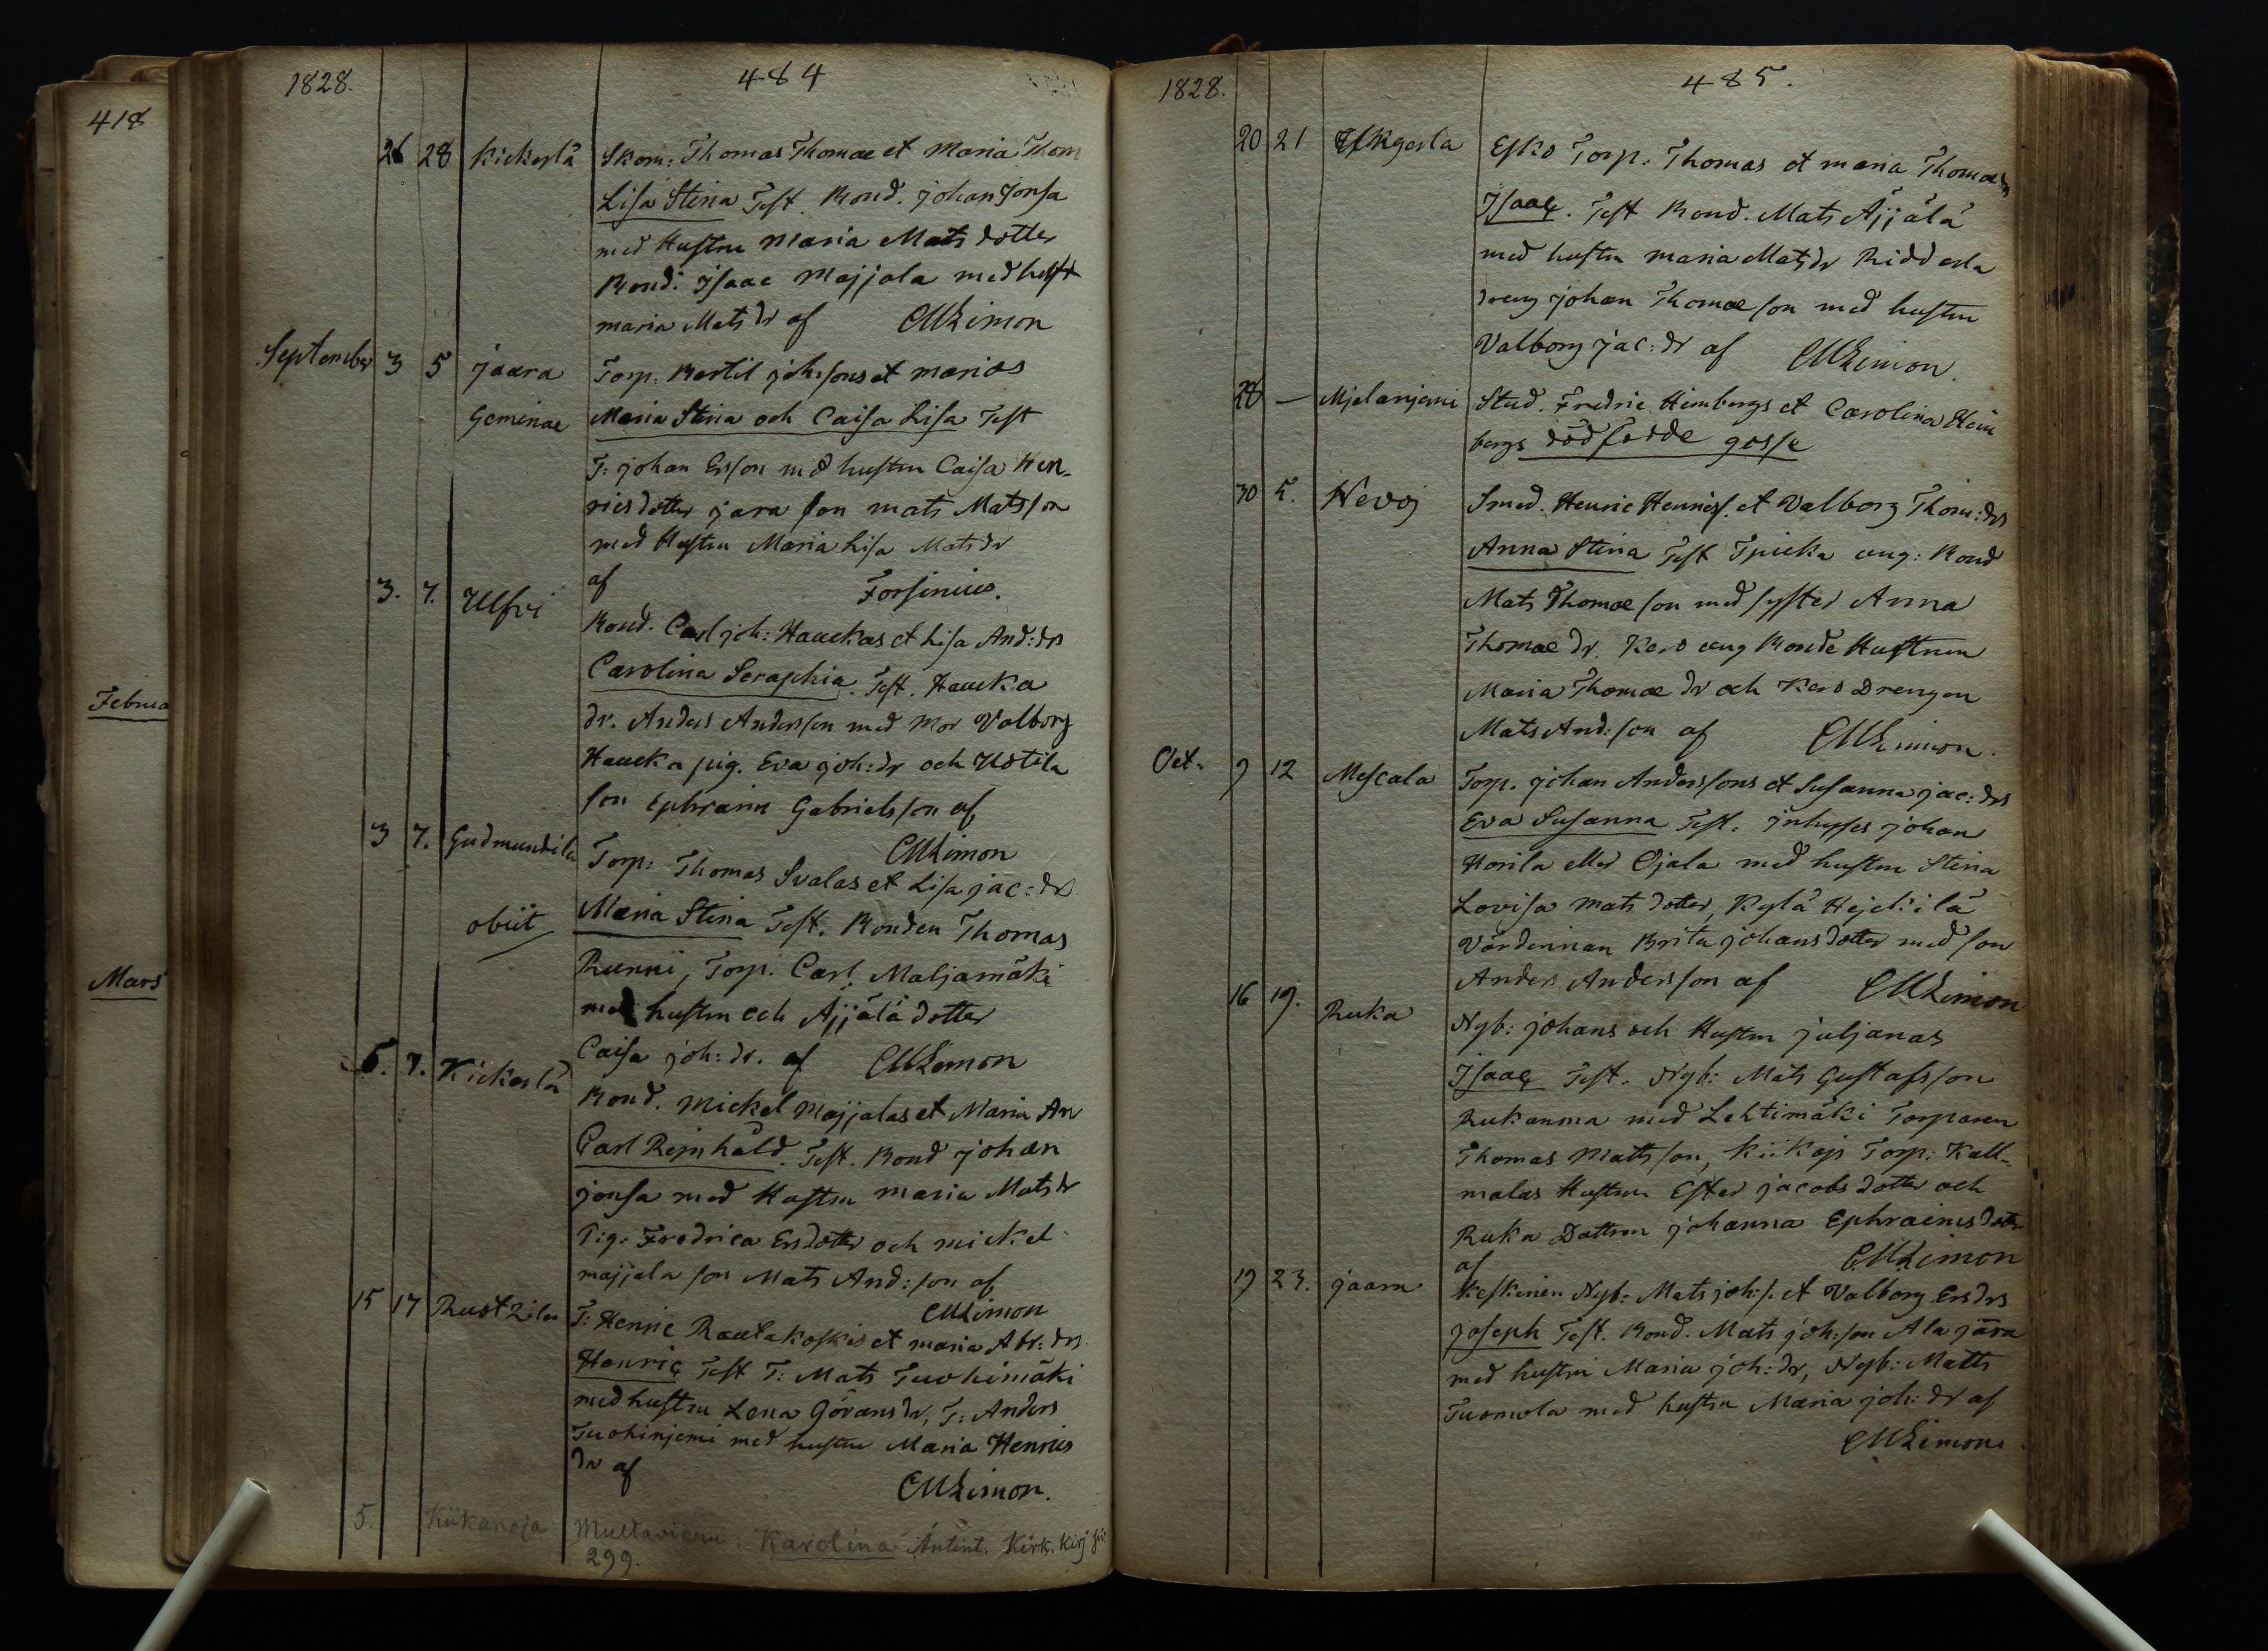 418
Februa
Mars
1828. 484
26 28 Kickerlä Skom: Thomas Thomae et Maria Thom
Lisa Stina Test. Bond. Johan Jonsa
med Hustru Maria Mats dotter
Bond: Isaac Majjala med hust
maria Mats dr af CMLimon
September 3 5 jaara Torp. Bertil joh:sons et marias
Geminae Maria Stina och Caisa Lisa Test
T: johan Ersson med hustru Caisa Hen-
ricsdotter jara son mats Matsson
med Hustru Maria Lisa Mats dr
af Forsinius.
3. 7. Ulfvi Bond. Carl joh: Hauckas et Lisa And:drs
Carolina Seraphia. Test. Haucka
dr. Anders Andersson med Mor Valborg
Haucka pig. Eva joh:dr och Uotila
son Ephraim Gabrielsson af
CMLimon
3 7. Gudmundila Torp: Thomas Svalas et Lisa jac:drs
obiit Maria Stina Test. Bonden Thomas
Runni, Torp. Carl Maljamäki
med hustru och Äjjälä dotter
Caisa joh:dr. af CMLimon
5. 7. Kickerlä Bond. Mickel Majjalas et Maria An
Carl Rejnhåld. Test. Bond johan
jonsa med Hustru maria Mats dr
Pig: Fredrica Ersdotter och mickel
majjala son Mats And:son af
CMLimon
15 17 Ruotzila T: Henric Rautakoskis et maria Abr:drs
Henric Test T: Mats Tuohimäki
med hustru Lena Görans dr, T: Anders
Tuohinjemi med hustru Maria Henrics
dr af
CMLimon.
5. Kiikanoja Multavieru: Karolina Antint. Kirk. kirj
299.
1828. 485.
20 21 Esko Torp. Thomas et maria Thomae
Isaac. Test Bond. Mats Äjjälä
med hustru maria Mats dr Ridderla
dreng johan Thomae son med hustru
Valborg jac:dr af CMLimon.
28 — Mjelanjemi Stud. Fredric Heimbergs et Carolina Heim
bergs dödfödde gosse
30 5. Nevoj Smed. Henric Henrics. et Valborg Thom:drs
Anna Stina Test Spicka ung: Bond
Mats Thomae son med syster Anna
Thomae dr. Kero ung Bonde Hustrun
Maria Thomae dr och Kero Drengen
Mats And:son af CMLimon.
Oct. 9 12 Mescala Torp. johan Anderssons et Susanna jac:drs
Eva Susanna Test. jnhyses johan
Horila eller Ojala med hustru Stina
Lovisa mats dotter, Kylä Hejckilä
Värdinnan Brita johans dotter med son
Anders Andersson af CMLimon
16 19. Ruka Nyb: johans och Hustru juljanas
Isaac Test. Nyb: Mats Gustafsson
Rukanma med Lehtimäki Torparen
Thomas Mattsson, Kiikojs Torp: Kall-
malas Hustru Ester jacobs dotter och
Ruka Dottren johanna Ephraims dotter
af CMLimon
19 23. jaara Keskinen Nyb: Mats joh:s. et Valborg Ersdrs
joseph Test. Bond. Mats joh:son Ala jära
med hustru Maria joh:dr, Nyb: Matts
Tuomola med hustru Maria joh:dr af
CMLimon.